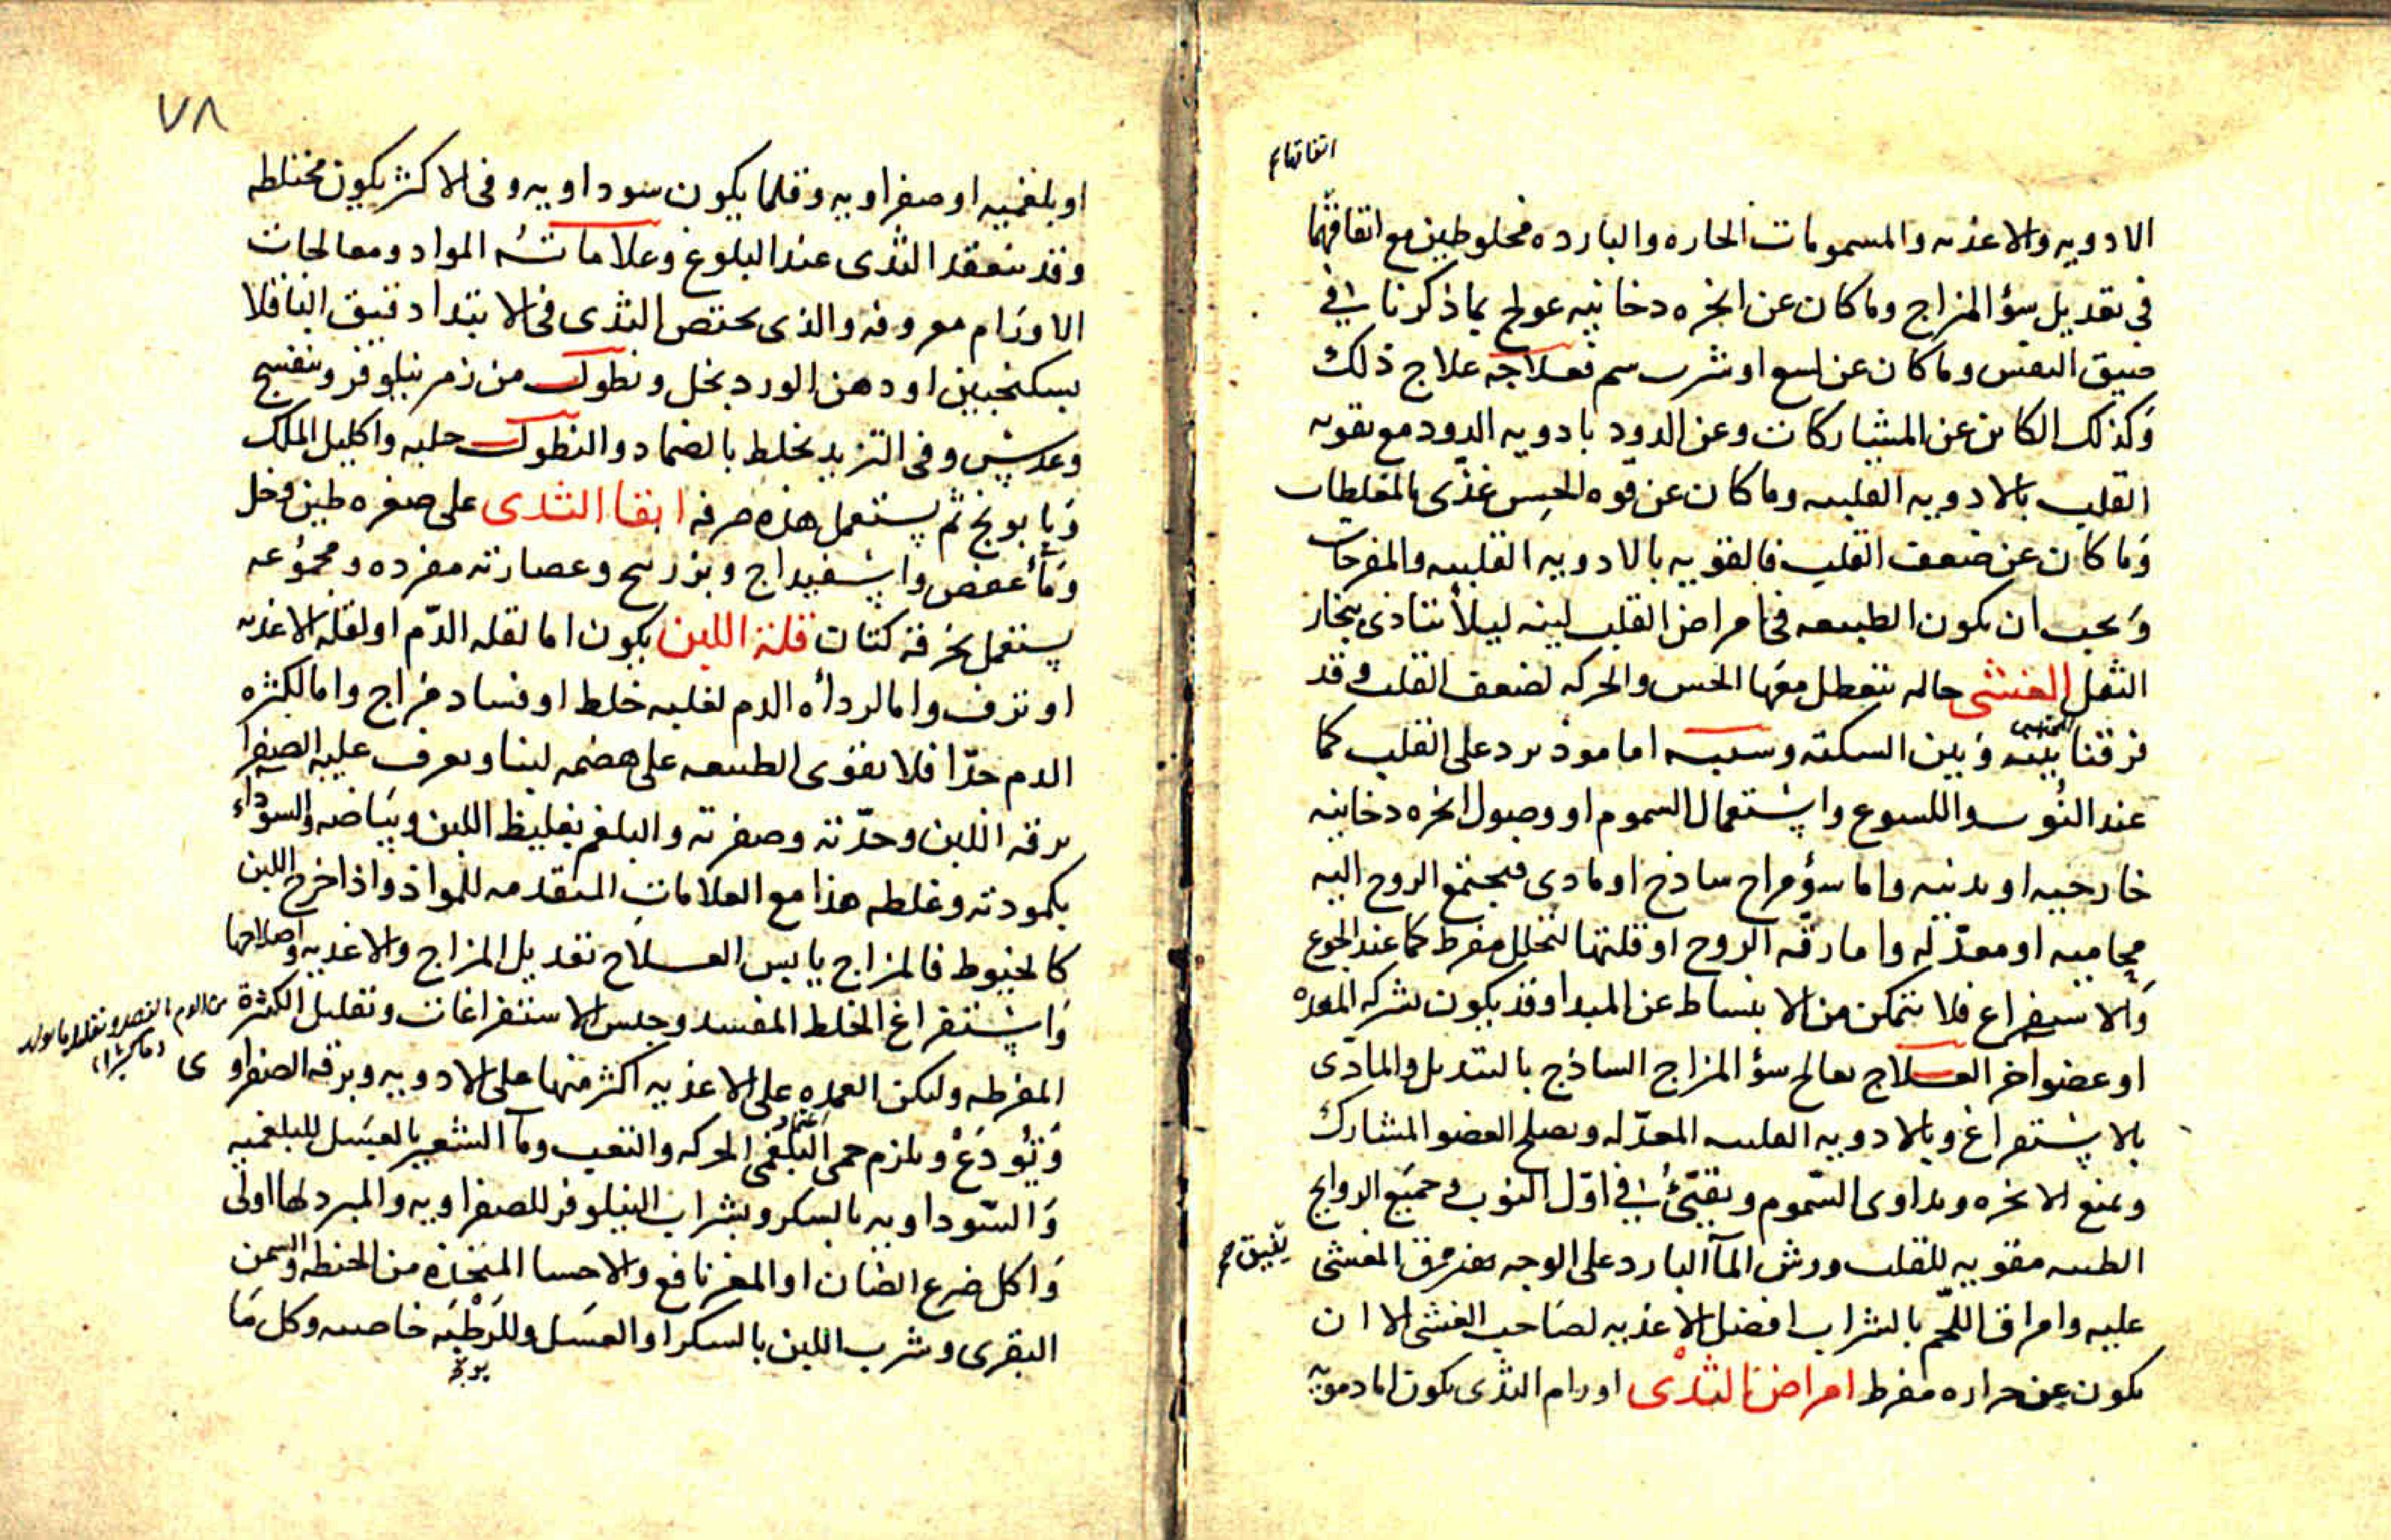 اتفاقها
الادويه والاغذيه والمسمومات الحاره والبارده مخلوطين مع اتفاقهما
في تعديل سؤ المزاج وما كان عن ابخره دخانيه عولج بما ذكرنا في
ضيق النفس وما كان عن لسع او شرب سم فعلاجه علاج ذلك
وكذلك الكائن عن المشاركات وعن الدود بادويه الدود مع تقويه
القلب بالادويه القلبيه وما كان عن قوه الحس غذى بالمغلظات
وما كان عن ضعف القلب فالتقويه بالادويه القلبيه والمفرحات
ويجب ان يكون الطبيعه في امراض القلب لينه ليلا تتاذى ببخار
الثفل الغشى حاله تتعطل معها الحس والحركه لضعف القلب وقد
فرقنا بينه وبين السكته وسببه اما موذ يرد على القلب كما
عند اللسوع واستعمال السموم او وصول ابخره دخانيه
خارجيه او بدنيه واما سؤ مزاج ساذج او مادى فيجتمع الروح اليه
محاميه او معدله واما رقه الروح او قلتها لتحلل مفرط كما عند الجوع
والاستفراغ فلا يتمكن من الانبساط عن المبدا وقد يكون بشركه المعده
او عضو اخر العلاج يعالج سؤ المزاج الساذج بالتبديل والمادى
بالاستفراغ وبالادويه القلبيه المعدله ويصلح العضو المشارك
ويمنع الابخره ويداوى السموم ويقيئ في اول النوب وجميع الروايح
الطيبه مقويه للقلب ورش المآ البارد على الوجه المغشى يفيق
عليه وامراق اللحم بالشراب افضل الاغذيه لصاحب الغشى الا ان
يكون عن حراره مفرط امراض الثدى اورام الثدى يكون اما دمويه
٧٨
او بلغميه او صفراويه وقلما يكون سوداويه وفى الاكثر يكون مختلطه
وقد ينعقد الثدى عند البلوغ وعلاماته المواد ومعالجات
الاورام معروفه والذى يختص الثدى فى الابتدا دقيق الباقلا
بسكنجبين او دهن الورد بخل ونطول من زهر نيلوفر وبنفسج
وعدس وفى التزيد يخلط بالضماد والنطول حلبه واكليل الملك
وبابونج ثم يستعمل هذه صرفه ابقا الثدى على صغره طين وخل
ومآ عفص واسفيداج وبزر بنج وعصارته مفرده ومجموعه
يستعمل بخرقة كتان قلة اللبن يكون اما لقله الدم او لقله الاغذيه
او نزف واما لرداءه الدم لغلبه خلط او فساد مزاج واما لكثره
الدم جدا فلا يقوى الطبيعه على هضمه لبنا ويعرف غلبه الصفرا
برقه اللبن وحدته وصفرته والبلغم بغليظ اللبن وبياضه والسوداء
بكمودته وغلظه هذا مع العلامات المتقدمه للمواد واذا خرج اللبن
كالخيوط فالمزاج يابس العلاج تعديل المزاج والاغذيه واصلاحها
واستفراغ الخلط المفسد وحبس الاستفراغات وتقليل الكثرة
من الدم بالفصد وتقليل ما يولد
المفرطه وليكن العمده على الاغذيه اكثر منها على الادويه ويرقه الصفراوى
وتودع ويلزم البلغمى الحركه والتعب ومآ الشعير بالعسل للبلغميه
والسوداويه بالسكر وبشراب النيلوفر للصفراويه والمبرد لها اولى
واكل ضرع الضان او المعز نافع والاحسا المتخذه من الحنطه والسمن
البقرى وشرب اللبن بالسكر او العسل وللرطبه خاصيه وكل ما